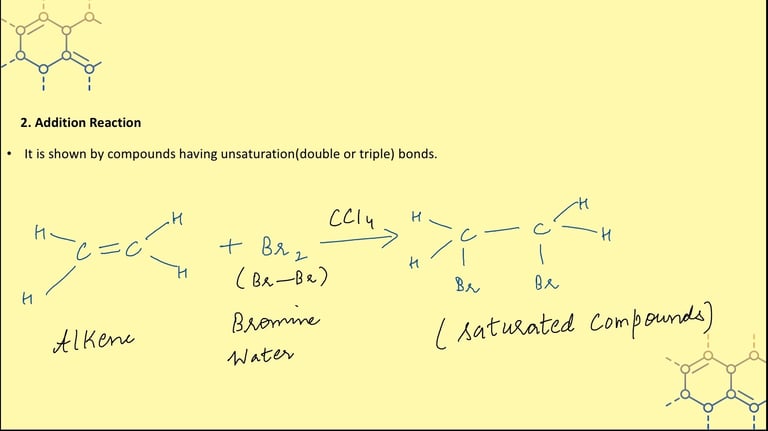 2. Addition Reaction
• It is shown by compounds having unsaturation(double or triple) bonds.
H H
C=C
H H
+ Br2
(Br—Br)
Bromine
Water
Alkene
CCl4
H H
C — C
H H
Br Br
(saturated compounds)